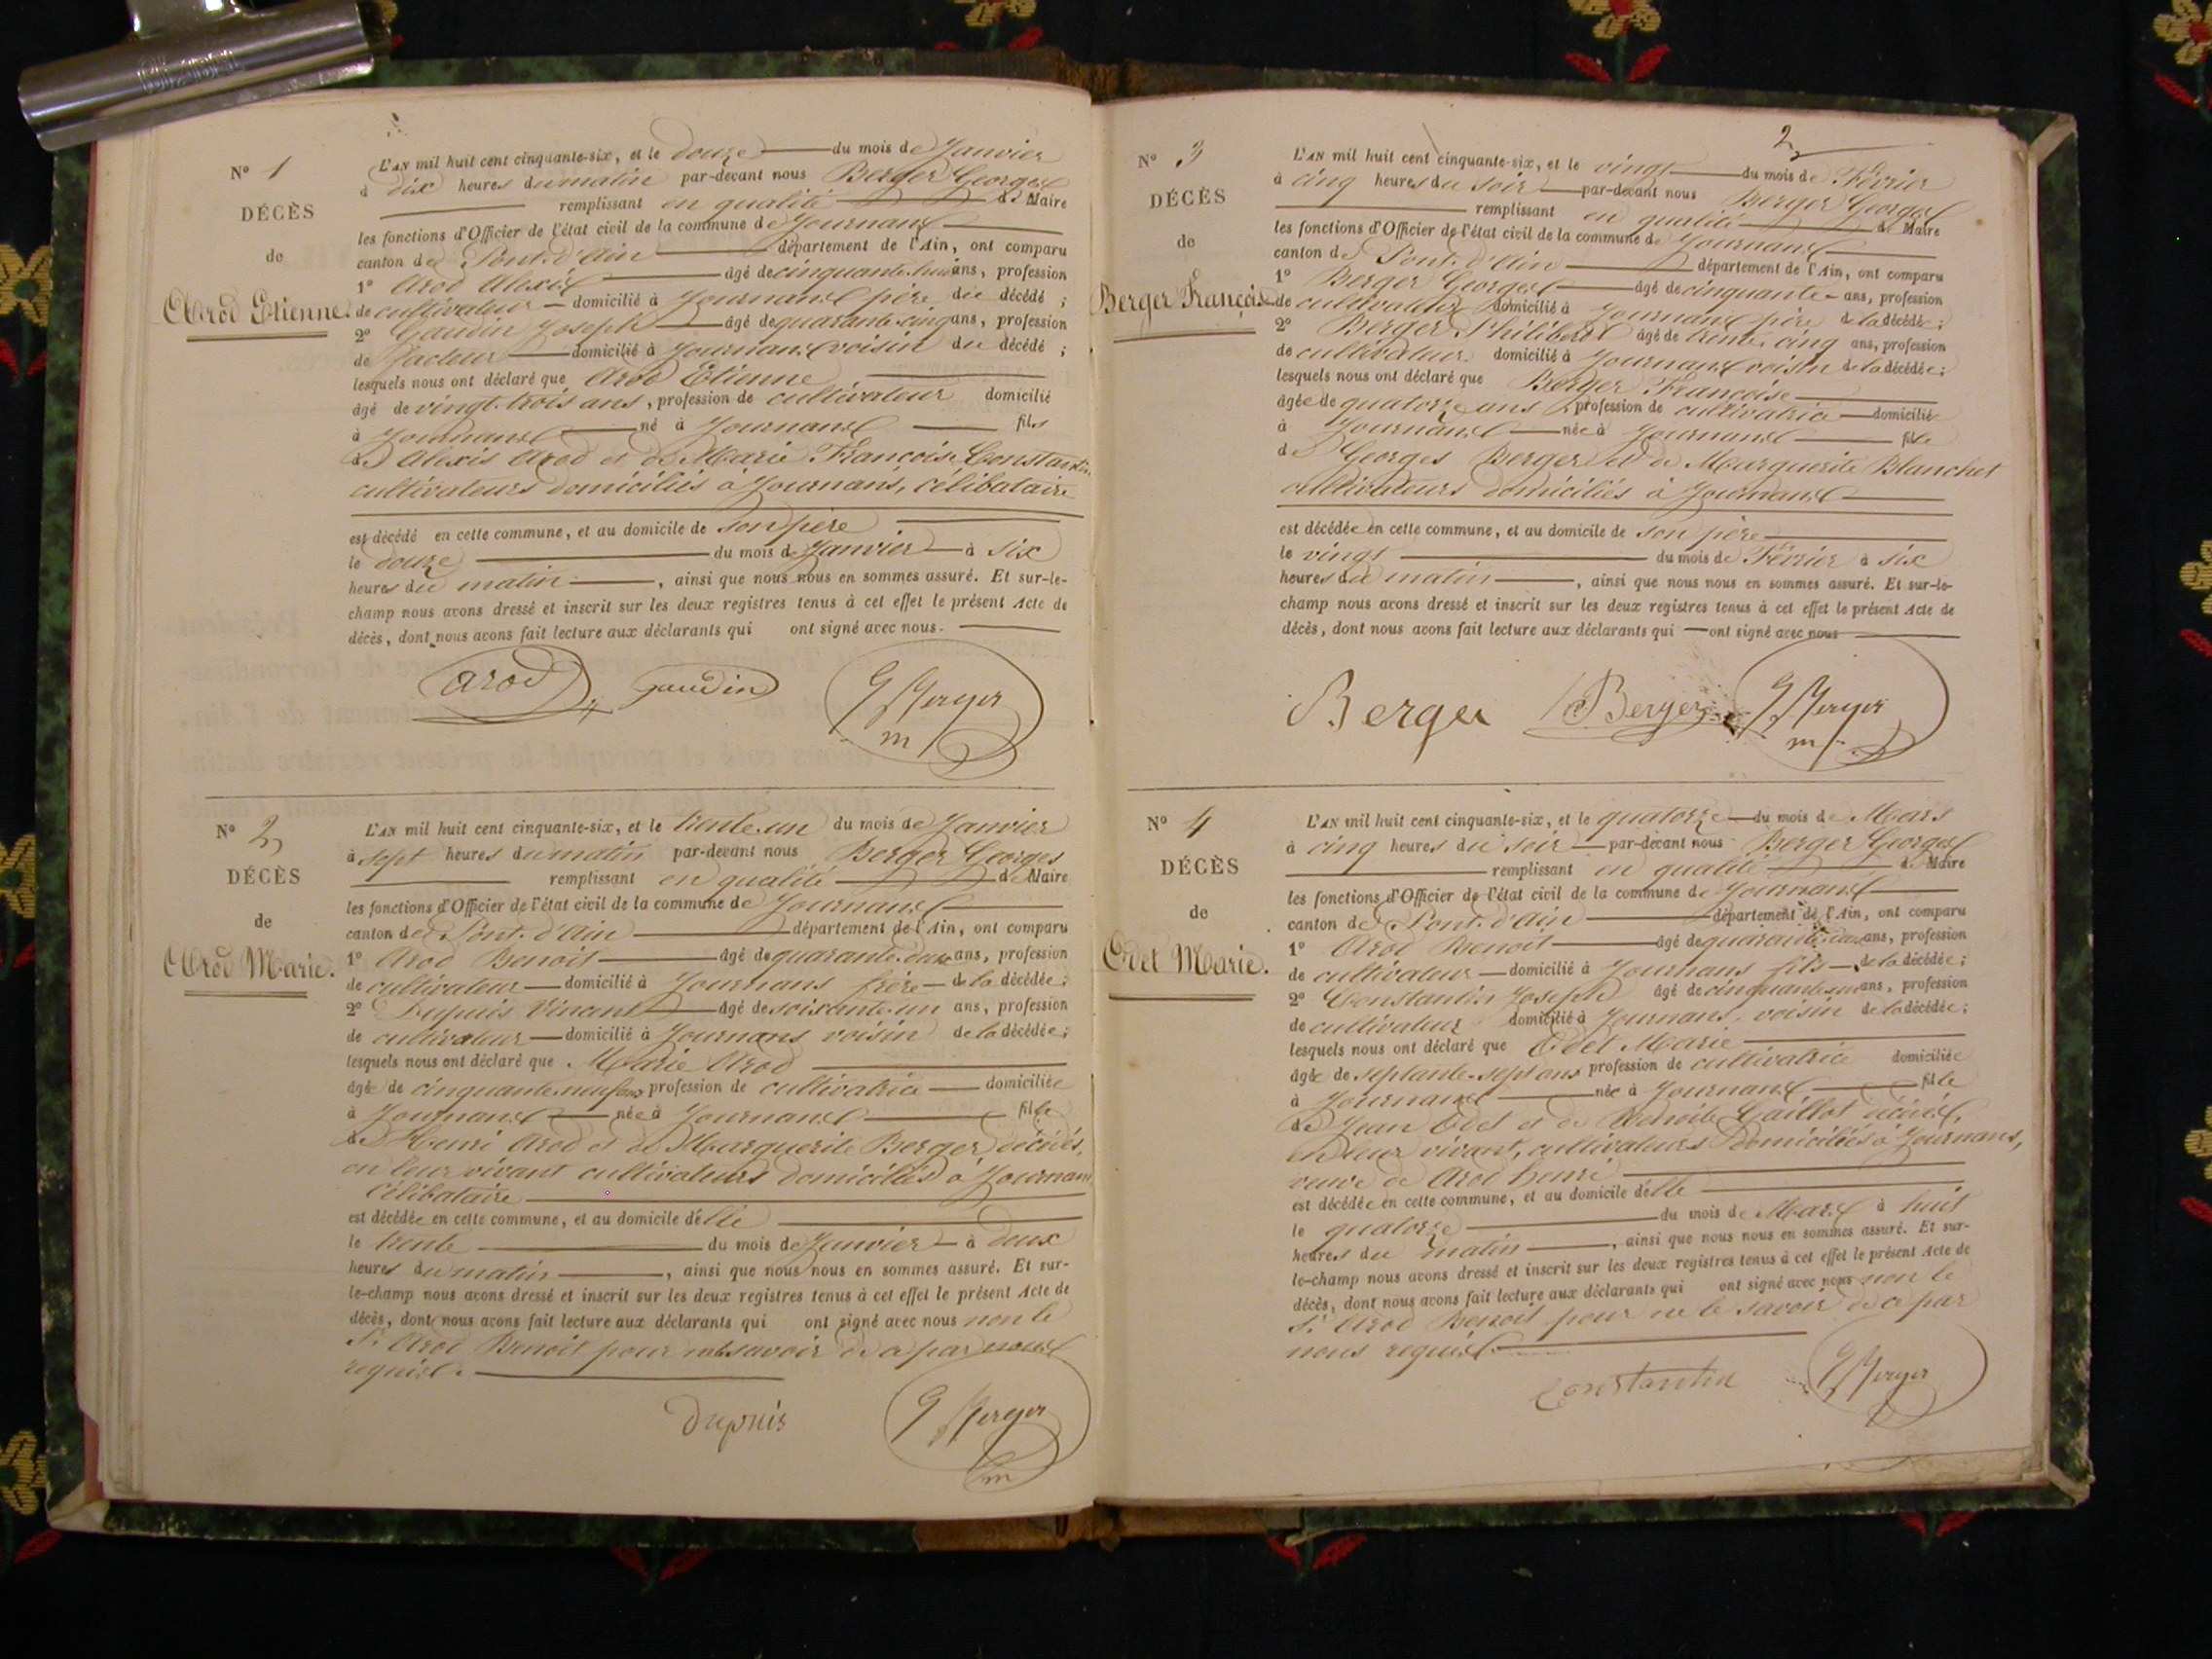 N° 1
DÉCÈS
de
Arod Etienne.
L'AN mil huit cent cinquante-six, et le douze du mois de Janvier
à dix heures du matin par-devant nous Berger Georges
remplissant en qualité de Maire
les fonctions d'Officier de l'état civil de la commune de Journans
canton de Pont-d'Ain département de l'Ain, ont comparu
1° Arod Alexis âgé de cinquante-huit ans, profession
de cultivateur domicilié à Journans père du décédé ;
2° Gaudin Joseph âgé de quarante-cinq ans, profession
de facteur domicilié à Journans voisin du décédé ;
lesquels nous ont déclaré que Arod Etienne
âgé de vingt-trois ans, profession de cultivateur domicilié
à Journans né à Journans fils
de Alexis Arod et de Marie Françoise Constantin
cultivateurs domiciliés à Journans, célibataire
est décédé en cette commune, et au domicile de son père
le douze du mois de Janvier à six
heures du matin, ainsi que nous nous en sommes assuré. Et sur-le-
champ nous avons dressé et inscrit sur les deux registres tenus à cet effet le présent Acte de
décès, dont nous avons fait lecture aux déclarants qui ont signé avec nous.
arod gaudin G Berger
m
N° 2
DÉCÈS
de
Arod Marie.
L'AN mil huit cent cinquante-six, et le trente-un du mois de Janvier
à sept heures du matin par-devant nous Berger Georges
remplissant en qualité de Maire
les fonctions d'Officier de l'état civil de la commune de Journans
canton de Pont-d'Ain département de l'Ain, ont comparu
1° Arod Benoit âgé de quarante-deux ans, profession
de cultivateur domicilié à Journans frère de la décédée ;
2° Dupuis Vincent âgé de soixante-un ans, profession
de cultivateur domicilié à Journans voisin de la décédée ;
lesquels nous ont déclaré que Marie Arod
âgée de cinquante-neuf ans profession de cultivatrice domiciliée
à Journans née à Journans fille
de Henri Arod et de Marguerite Berger décédés,
en leur vivant cultivateurs domiciliés à Journans
célibataire
est décédée en cette commune, et au domicile d'elle
le trente du mois de Janvier à deux
heures du matin, ainsi que nous nous en sommes assuré. Et sur-
le-champ nous avons dressé et inscrit sur les deux registres tenus à cet effet le présent Acte de
décès, dont nous avons fait lecture aux déclarants qui ont signé avec nous non le
Sr Arod Benoit pour ne le savoir de ce par nous
requis.
Dupuis G Berger
m
2
N° 3
DÉCÈS
de
Berger Françoise
L'AN mil huit cent cinquante-six, et le vingt du mois de Février
à cinq heures du soir par-devant nous Berger Georges
remplissant en qualité de Maire
les fonctions d'Officier de l'état civil de la commune de Journans
canton de Pont-d'Ain département de l'Ain, ont comparu
1° Berger Georges âgé de cinquante ans, profession
de cultivateur domicilié à Journans père de la décédée ;
2° Berger Philibert âgé de trente-cinq ans, profession
de cultivateur domicilié à Journans voisin de la décédée ;
lesquels nous ont déclaré que Berger Françoise
âgée de quatorze ans, profession de cultivatrice domiciliée
à Journans née à Journans fille
de Georges Berger et de Marguerite Blanchet
cultivateurs domiciliés à Journans
est décédée en cette commune, et au domicile de son père
le vingt du mois de Février à six
heures du matin, ainsi que nous nous en sommes assuré. Et sur-le-
champ nous avons dressé et inscrit sur les deux registres tenus à cet effet le présent Acte de
décès, dont nous avons fait lecture aux déclarants qui ont signé avec nous
Berger Berger G Berger
m
N° 4
DÉCÈS
de
Odet Marie.
L'AN mil huit cent cinquante-six, et le quatorze du mois de Mars
à cinq heures du soir par-devant nous Berger Georges
remplissant en qualité de Maire
les fonctions d'Officier de l'état civil de la commune de Journans
canton de Pont-d'Ain département de l'Ain, ont comparu
1° Arod Benoit âgé de quarante-deux ans, profession
de cultivateur domicilié à Journans fils de la décédée ;
2° Constantin Joseph âgé de cinquante-un ans, profession
de cultivateur domicilié à Journans, voisin de la décédée ;
lesquels nous ont déclaré que Odet Marie
âgée de septante-sept ans profession de cultivatrice domiciliée
à Journans née à Journans fille
de Jean Odet et de Benoite Caillot décédés,
en leur vivant, cultivateurs domiciliés à Journans,
veuve de Arod henri
est décédée en cette commune, et au domicile d'elle
le quatorze du mois de Mars à huit
heures du matin, ainsi que nous nous en sommes assuré. Et sur-
le-champ nous avons dressé et inscrit sur les deux registres tenus à cet effet le présent Acte de
décès, dont nous avons fait lecture aux déclarants qui ont signé avec nous non le
Sr Arod Benoit pour ne le savoir de ce par
nous requis.
Constantin G Berger